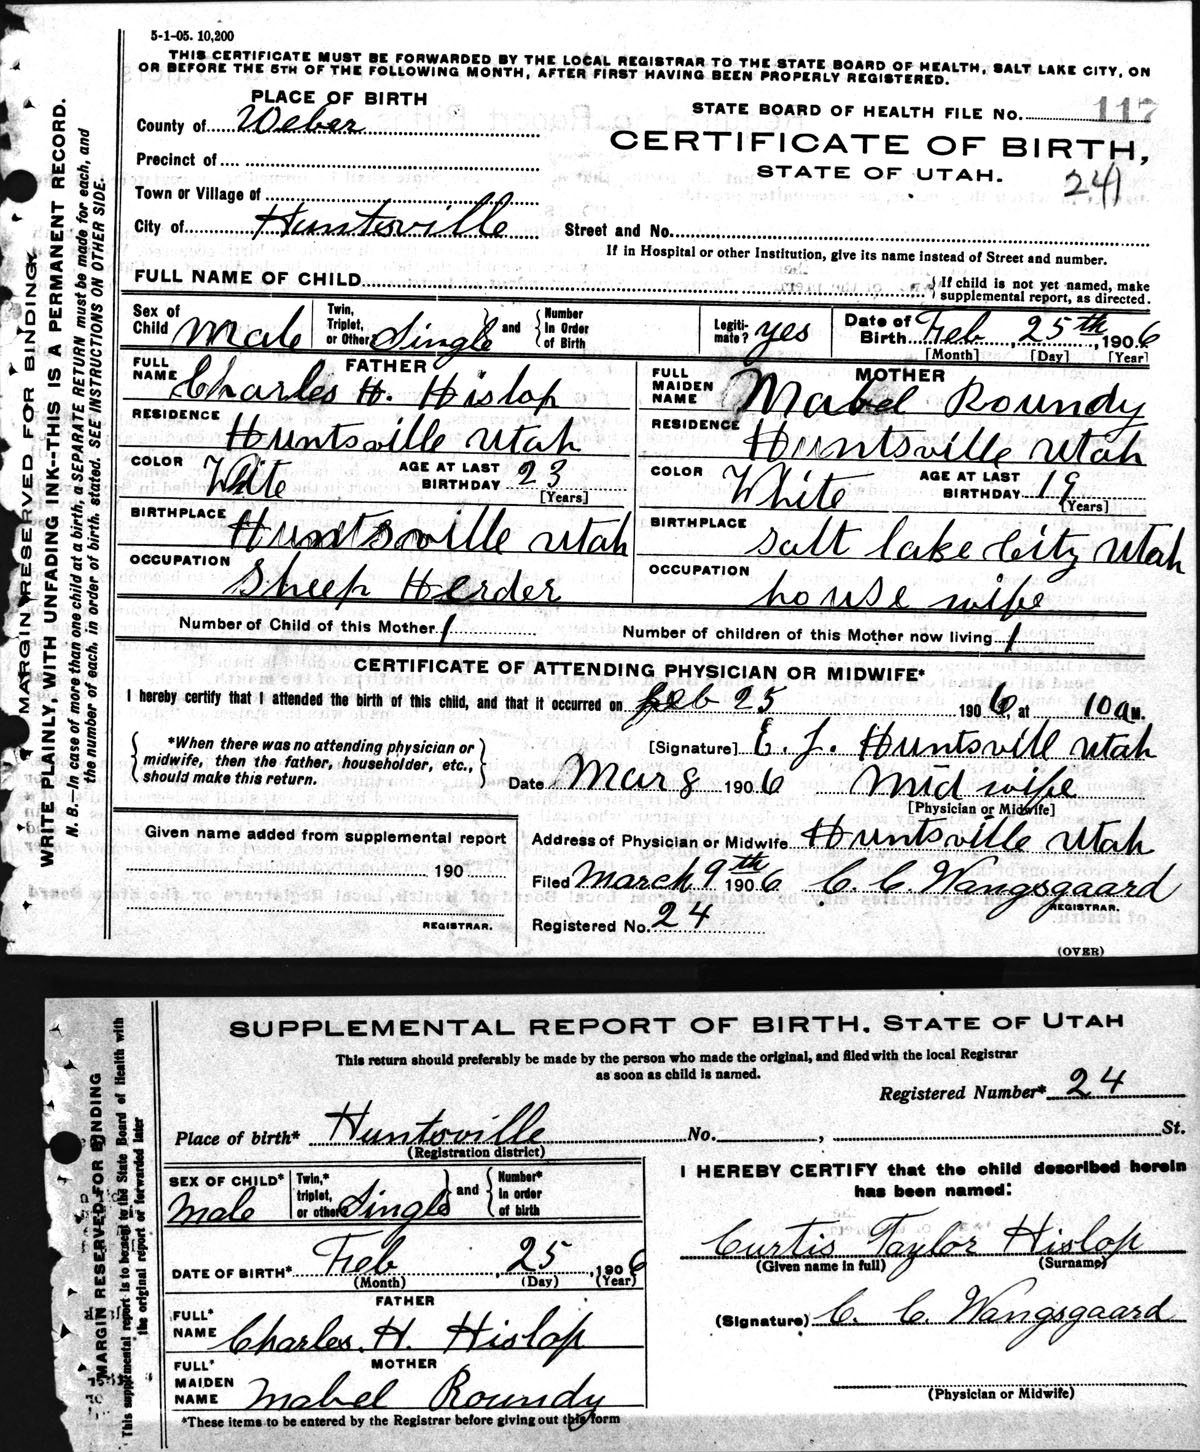 5-1-05. 10,200
THIS CERTIFICATE MUST BE FORWARDED BY THE LOCAL REGISTRAR TO THE STATE BOARD OF HEALTH, SALT LAKE CITY, ON
OR BEFORE THE 5TH OF THE FOLLOWING MONTH, AFTER FIRST HAVING BEEN PROPERLY REGISTERED.
MARGIN RESERVED FOR BINDING.
WRITE PLAINLY, WITH UNFADING INK--THIS IS A PERMANENT RECORD.
N. B.—In case of more than one child at a birth, a SEPARATE RETURN must be made for each, and
the number of each, in order of birth, stated. SEE INSTRUCTIONS ON OTHER SIDE.
PLACE OF BIRTH
County of Weber
Precinct of
Town or Village of
City of Huntsville
STATE BOARD OF HEALTH FILE No. 117
CERTIFICATE OF BIRTH,
STATE OF UTAH.
241
Street and No.
If in Hospital or other Institution, give its name instead of Street and number.
FULL NAME OF CHILD
{If child is not yet named, make
supplemental report, as directed.
Sex of Child Male
Twin, Triplet, or Other Single } and { Number In Order of Birth
Legiti-mate? yes
Date of Birth Feb, 25th, 1906
[Month] [Day] [Year]
FATHER
FULL NAME Charles H. Hislop
RESIDENCE Huntsville Utah
COLOR White AGE AT LAST BIRTHDAY 23
[Years]
BIRTHPLACE Huntsville Utah
OCCUPATION Sheep Herder
MOTHER
FULL MAIDEN NAME Mabel Roundy
RESIDENCE Huntsville Utah
COLOR White AGE AT LAST BIRTHDAY 19
[Years]
BIRTHPLACE Salt lake City Utah
OCCUPATION house wife
Number of Child of this Mother 1 Number of children of this Mother now living 1
CERTIFICATE OF ATTENDING PHYSICIAN OR MIDWIFE*
I hereby certify that I attended the birth of this child, and that it occurred on Feb 25 1906, at 10 a M.
{ *When there was no attending physician or
midwife, then the father, householder, etc.,
should make this return. }
[Signature] E. J. Huntsvill Utah
Date Mar 8 1906 Mid wife
[Physician or Midwife]
Given name added from supplemental report
190
REGISTRAR.
Address of Physician or Midwife Huntsville Utah
Filed March 9th 1906 C. C. Wangsgaard
REGISTRAR.
Registered No. 24
(OVER)
SUPPLEMENTAL REPORT OF BIRTH. STATE OF UTAH
This return should preferably be made by the person who made the original, and filed with the local Registrar
as soon as child is named.
MARGIN RESERVED FOR BINDING
This supplemental report is to be sent to the State Board of Health with
the original report or forwarded later
Registered Number* 24
Place of birth* Huntsville No. , St.
(Registration district)
SEX OF CHILD* Male
Twin,* triplet, or other Single } and { Number* In order of birth
DATE OF BIRTH* Feb, 25, 1906
(Month) (Day) (Year)
FATHER
FULL* NAME Charles. H. Hislop
MOTHER
FULL* MAIDEN NAME Mabel Roundy
*These items to be entered by the Registrar before giving out this form
I HEREBY CERTIFY that the child described herein
has been named:
Curtis Taylor Hislop
(Given name in full) (Surname)
(Signature) C. C. Wangsgaard
(Physician or Midwife)